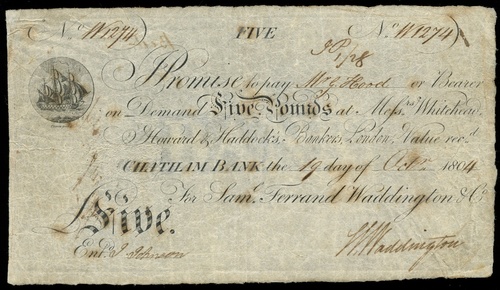 No. W1274 FIVE No. W1274
I Promise to pay Mr. G Hood or Bearer
on Demand Five Pounds at Messrs. Whitehead,
Howard & Haddock's, Bankers, London, Value recd.
CHATHAM BANK the 19 day of Octr. 1804
For Saml. Ferrand Waddington & Co.
Five.
Entd. J Johnson
W Waddington